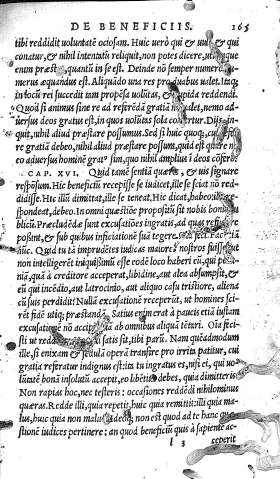 DE BENEFICIIS. 165
tibi reddidit uoluntatē ociosam. Huic uerò qui & uult, & qui
conatur, & nihil intentatū reliquit, non potes dicere,
enim præst quantū in se est. Deinde nō semper numero
merus æquandus est. Aliquādo una res pro duabus ualet. Itaq;
in locū rei succedit tam propēsa uolūtas, & cupida reddendi.
Quod si animus sine re ad referēdā gratiā nō ualet, nemo ad-
uersus deos gratus est, in quos uolūtas sola confertur. Dijs, in-
quit, nihil aliud præstare possumus. Sed si huic quoq; cui
re gratiā debeo, nihil aliud præstare possum, quid est quare
eo aduersus hominē gratus sim, quo nihil amplius ī deos cōfero?
CAP. XVI. Quid tamē sentiā quæris, & uis signare
respōsum. Hic beneficiū recepisse se iudicet, ille se sciat nō red-
didisse. Hic illū dimittat, ille se teneat. Hic dicat, habeo: ille re-
spondeat, debeo. In omni quæstiōe propositū sit nobis bonū
blicū. Præcludēdæ sunt excusatiōes ingratis, ad quas refugere
possint, & sub quibus inficiationē suā tegere.
nc. Quid tu tā imprudētes iudicas maiores nostros fuisse, ut
non intelligerēt iniquissimū esse eodē loco haberi eū, qui pecu-
niā, quā à creditore acceperat, libidine, aut alea absumpsit, &
eū qui incēdio, aut latrocinio, aut aliquo casu tristiore, aliena
cū suis perdidit? Nullā excusationē receperūt, ut homines sci-
rēt fidē utiq; præstandā. Satius enim erat à paucis etiā iustam
excusationē nō accipi, quā ab omnibus aliquā tētari. Oīa feci-
sti ut redderes: illi satis sit, tibi parū. Nam quēadmodum
ille, si enixam & sedulā operā transire pro irrita patitur, cui
gratia referatur indignus est: ita tu ingratus es, nisi ei, qui uo-
lūtatē bonā in solutū accepit, eo libētius debes, quia dimitteris.
Non rapias hoc, nec testeris: occasiones reddēdi nihilominus
quæras. Redde illi, quia repetit: huic quia remittit: illi quia ma-
lus, huic quia non malus. non est quod ad te hanc quæ-
stionē iudices pertinere: an quod beneficiū quis à sapiente ac-
l 3 ceperit